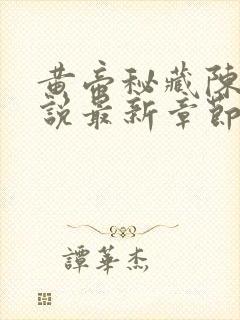 黄帝秘藏陳
說最新章節
譚華杰